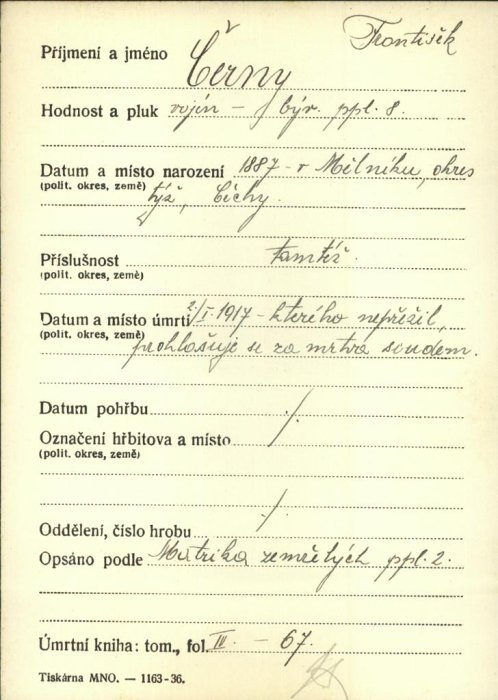 František
Příjmení a jméno Černy
Hodnost a pluk vojín – býv. ppl. 8.
Datum a místo narození 1887 – v Mělníku, okres
(polit. okres, země) týž, Čechy.
Příslušnost tamtéž.
(polit. okres, země)
Datum a místo úmrtí 2/I. 1917 – kterého nepřežil,
(polit. okres, země) prohlašuje se za mrtva soudem.
Datum pohřbu ./.
Označení hřbitova a místo
(polit. okres, země)
Oddělení, číslo hrobu ./.
Opsáno podle Matrika zemřelých ppl. 2.
Úmrtní kniha: tom., fol. III. – 67.
Tiskárna MNO. — 1163-36.